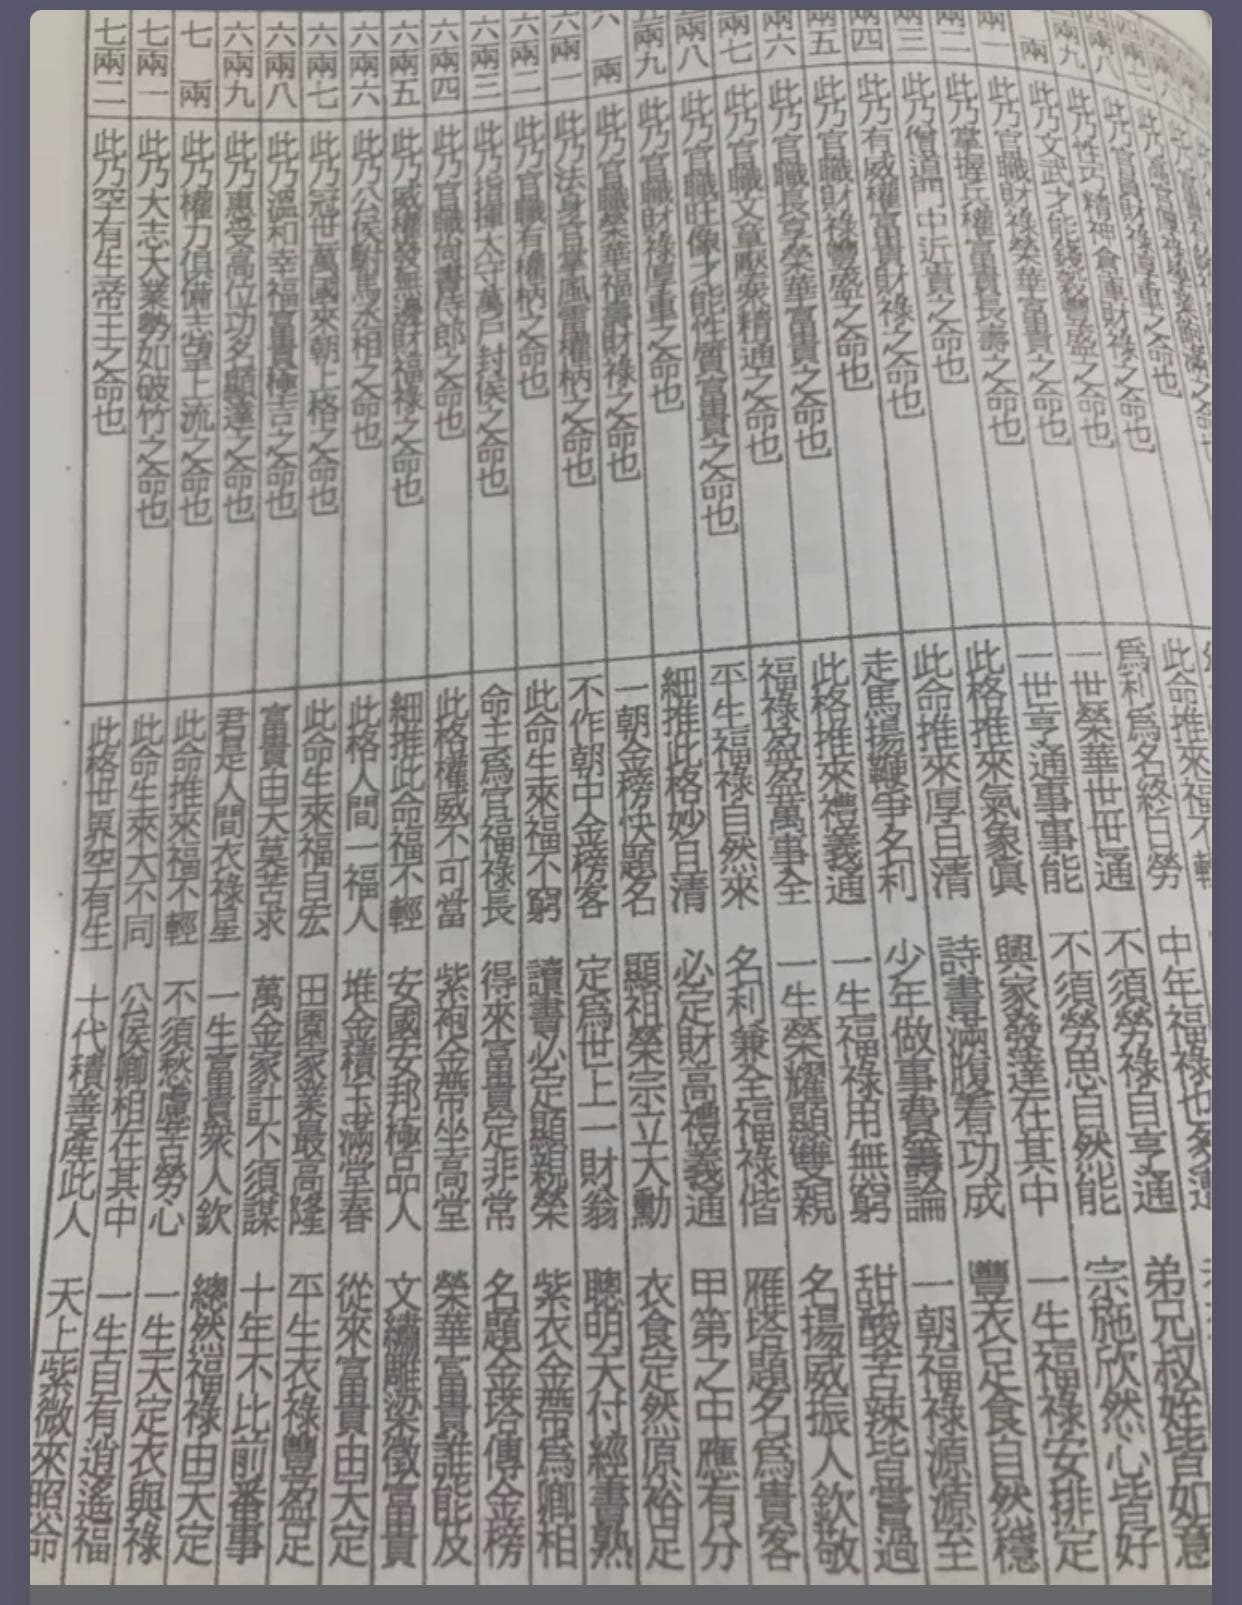 五兩九
五兩八
五兩七
五兩六
五兩五
五兩四
五兩三
五兩二
五兩一
四兩九
四兩八
此乃高官厚祿學業飽滿之命也
此乃官員財祿厚重之命也
此乃性巧精神倉庫財祿之命也
此乃文武才能錢穀豐盛之命也
此乃官職財祿榮華富貴長壽之命也
此乃掌握兵權富貴長壽之命也
此乃僧道門中近貴之命也
此乃有威權富貴財祿之命也
此乃官職財祿豐盛之命也
此乃官職長享榮華富貴之命也
此乃官職文章壓衆精通之命也
此乃官職旺像才能性質富貴之命也
此乃官職財祿厚重之命也
六兩 此乃官職榮華福壽財祿之命也
六兩一 此乃法身官掌風雷權柄之命也
六兩二 此乃官職有權柄之命也
六兩三 此乃指揮太守萬戶封侯之命也
六兩四 此乃官職尚書侍郎之命也
六兩五 此乃威權發無邊財福祿之命也
六兩六 此乃公侯駙馬丞相之命也
六兩七 此乃冠世萬國來朝上格之命也
六兩八 此乃溫和幸福富貴極吉之命也
六兩九 此乃惠受高位功名顯達之命也
七兩 此乃權力俱備志望上流之命也
七兩一 此乃大志大業勢如破竹之命也
七兩二 此乃罕有生帝王之命也
此命推來福不輕
為利為名終日勞 中年福祿也多遭
一世榮華世世通 不須勞祿自亨通 弟兄叔姪皆如意
一世亨通事事能 不須勞思自然能 宗施欣然心皆好
此格推來氣象真 興家發達在其中 一生福祿安排定
此命推來厚且清 詩書滿腹看功成 豐衣足食自然穩
走馬揚鞭爭名利 少年做事費籌論 一朝福祿源源至
此格推來禮義通 一生福祿用無窮 甜酸苦辣皆嘗過
福祿盈盈萬事全 一生榮耀顯雙親 名揚威振人欽敬
平生福祿自然來 名利兼全福祿偕 雁塔題名為貴客
細推此格妙且清 必定財高禮義通 甲第之中應有分
一朝金榜快題名 顯祖榮宗立大勳 衣食定然原裕足
不作朝中金榜客 定為世上一財翁 聰明天付經書熟
此命生來福不窮 讀書必定顯親榮 紫衣金帶為卿相
命主為官福祿長 得來富貴定非常 名題金塔傳金榜
此格權威不可當 紫袍金帶坐高堂 榮華富貴誰能及
細推此命福不輕 安國安邦極品人 文繡雕梁徵富貴
此格人間一福人 堆金積玉滿堂春 從來富貴由天定
此命生來福自宏 田園家業最高隆 平生衣祿豐盈足
富貴由天莫苦求 萬金家計不須謀 十年不比前番事
君是人間衣祿星 一生富貴衆人欽 總然福祿由天定
此命推來福不輕 不須愁慮苦勞心 一生天定衣與祿
此命生來大不同 公侯卿相在其中 一生自有逍遙福
此格世界罕有生 十代積善產此人 天上紫微來照命